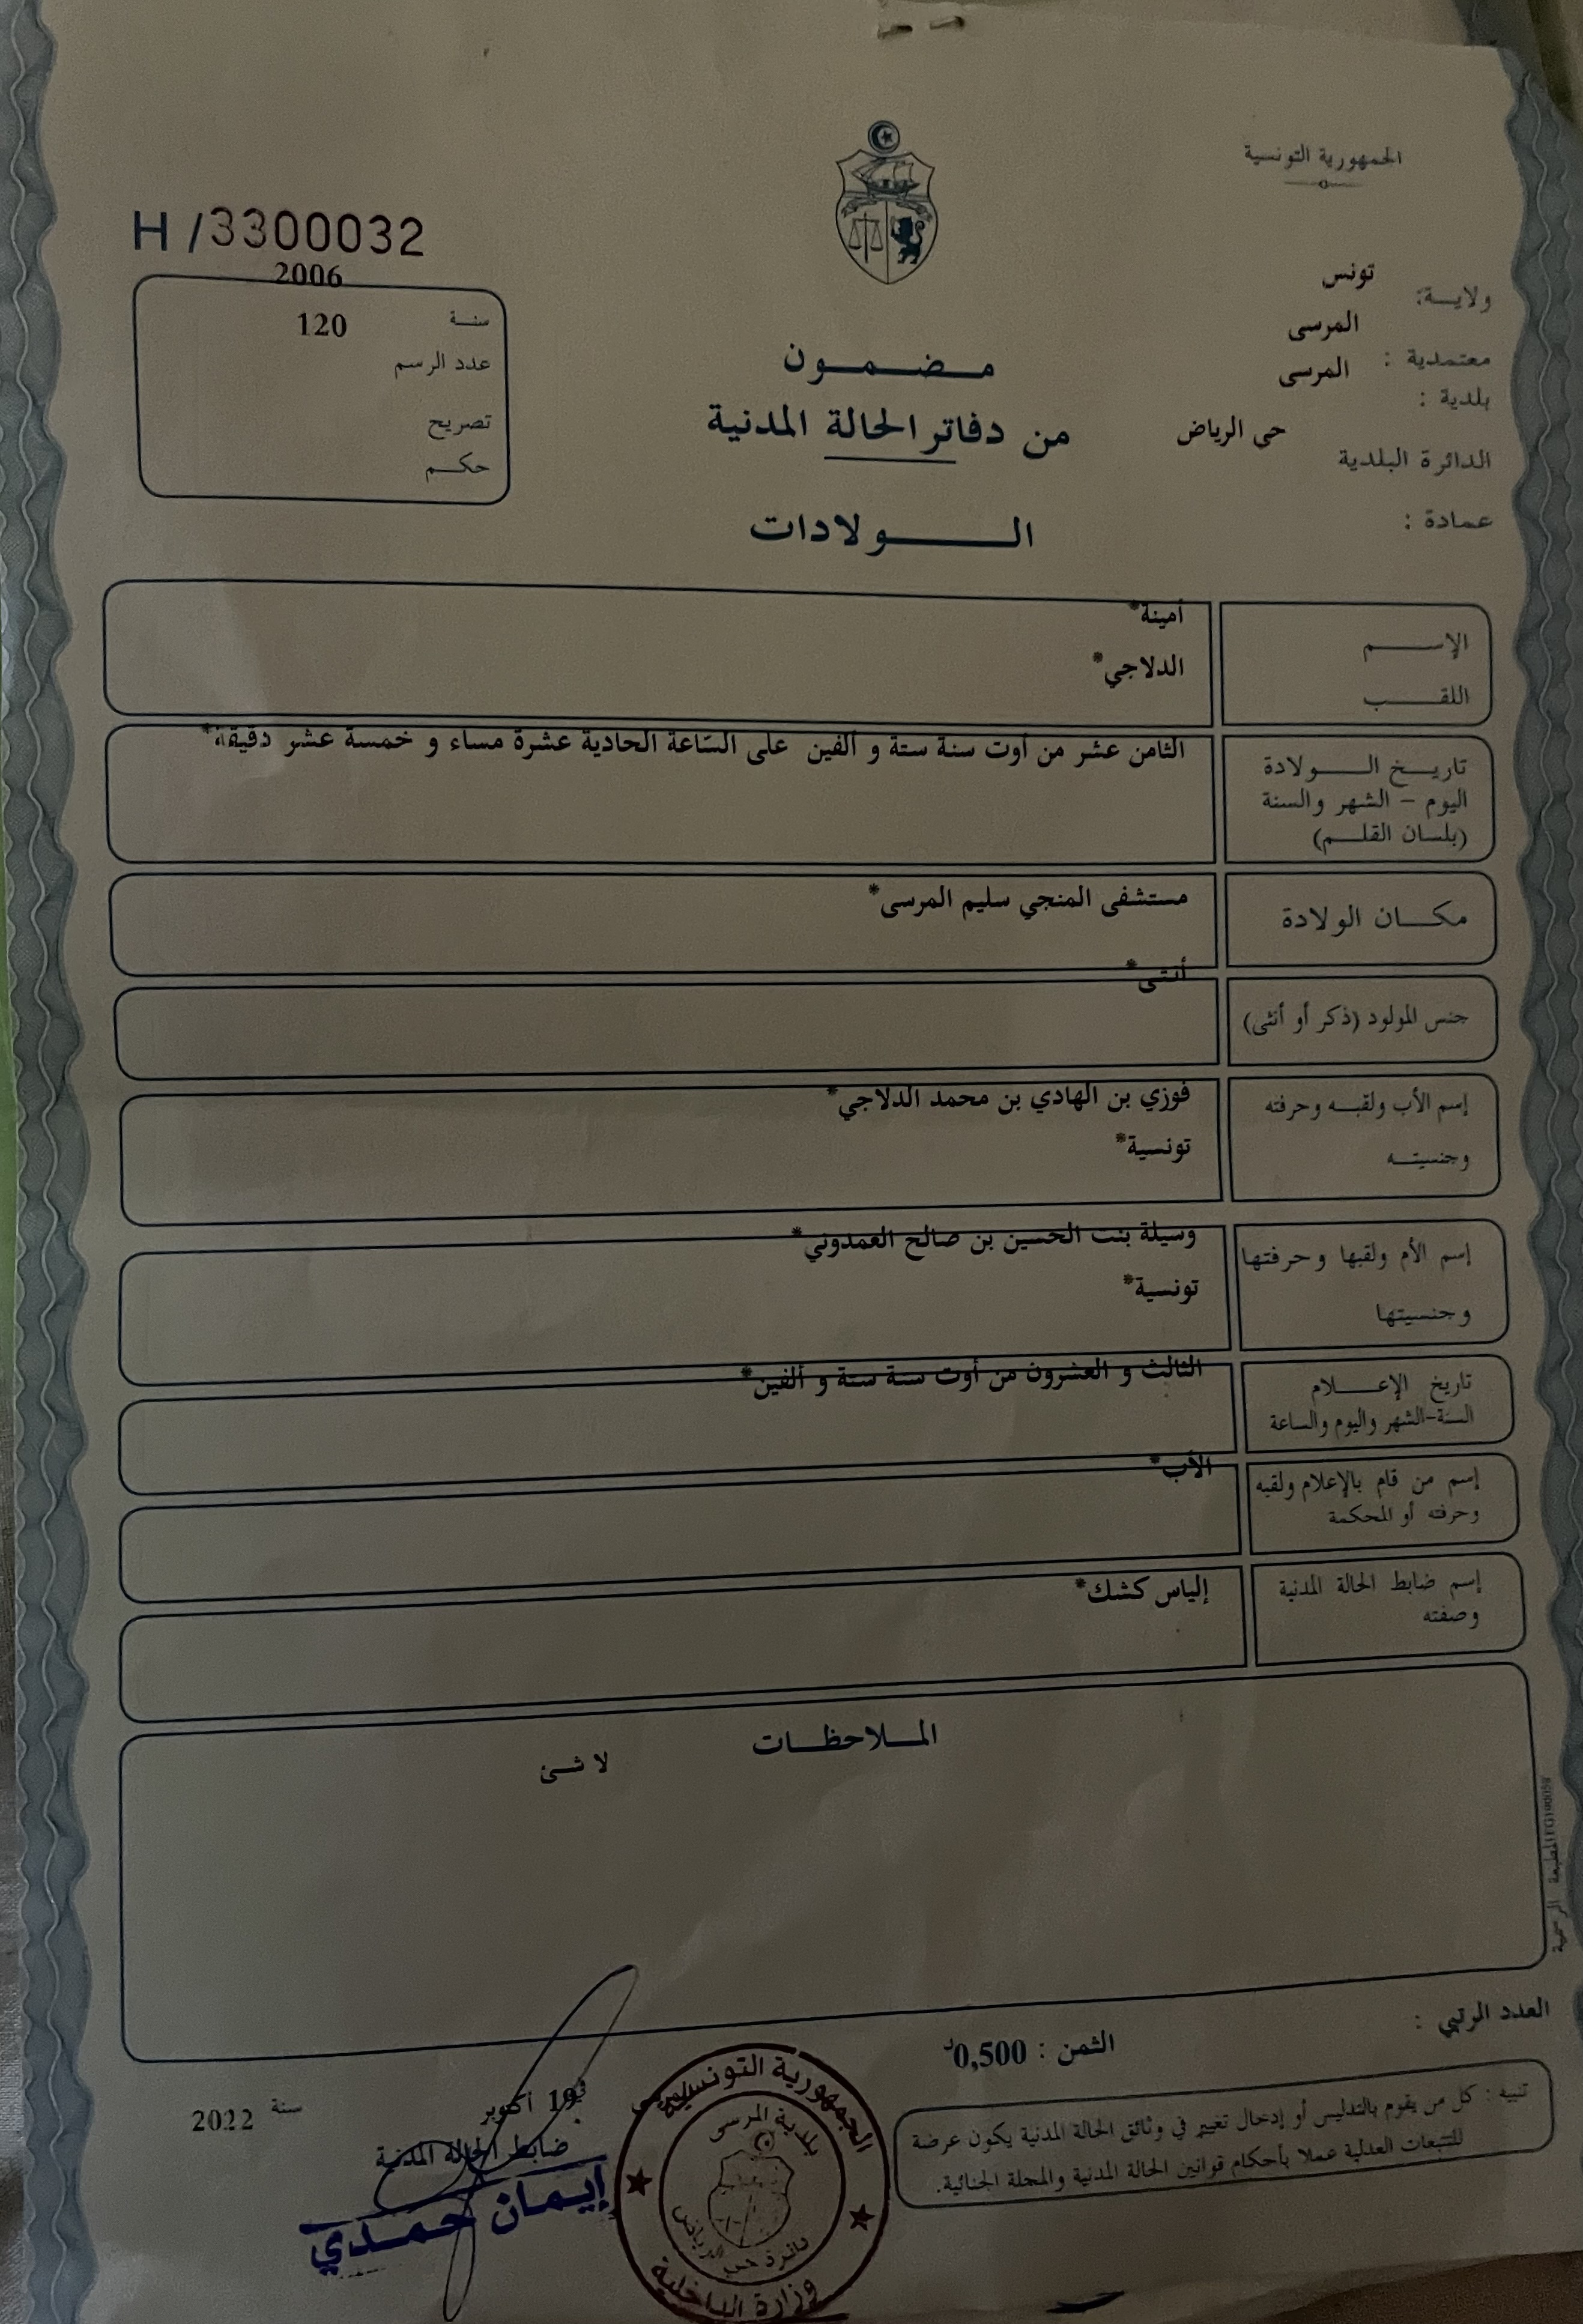 الجمهورية التونسية
H /3300032
ولايـــة: تونس
معتمدية : المرسى
بلدية : المرسى
الدائرة البلدية حى الرياض
عمادة :
سنـة 2006
عدد الرسم 120
تصريح
حكـــم
مـــضـــمـــون
من دفاتر الحالة المدنية
الـــــولادات
الإســـــم أمينة*
اللقـــــب الدلاجي*
تاريــخ الـــــولادة
اليوم – الشهر والسنة
(بلسان القلـــم)
الثامن عشر من أوت سنة ستة و ألفين على السّاعة الحادية عشرة مساء و خمسة عشر دقيقة*
مكـــان الولادة مستشفى المنجي سليم المرسى*
جنس المولود (ذكر أو أنثى) أنثى*
إسم الأب ولقبـــه وحرفته فوزي بن الهادي بن محمد الدلاجي*
وجنسيتـــه تونسية*
إسم الأم ولقبها وحرفتها وسيلة بنت الحسين بن صالح العمدوني*
وجنسيتها تونسية*
تاريخ الإعــــلام
السنة-الشهر واليوم والساعة
الثالث و العشرون من أوت سنة ستة و ألفين*
إسم من قام بالإعلام ولقبه
وحرفته أو المحكمة
الأب*
إسم ضابط الحالة المدنية
وصفته
إلياس كشك*
المـــلاحظـــات
لا شئ
المطبعة الرسمية
العدد الرتبي :
الثمن : 0,500د
تنبيه : كل من يقوم بالتدليس أو إدخال تغيير في وثائق الحالة المدنية يكون عرضة
للتتبعات العدلية عملا بأحكام قوانين الحالة المدنية والمجلة الجنائية.
19 أكتوبر سنة 2022
ضابط الحالة المدنية
إيـمـان حـمـدي
الجمهورية التونسية
بلدية المرسى
دائرة حي الرياض
وزارة الداخلية